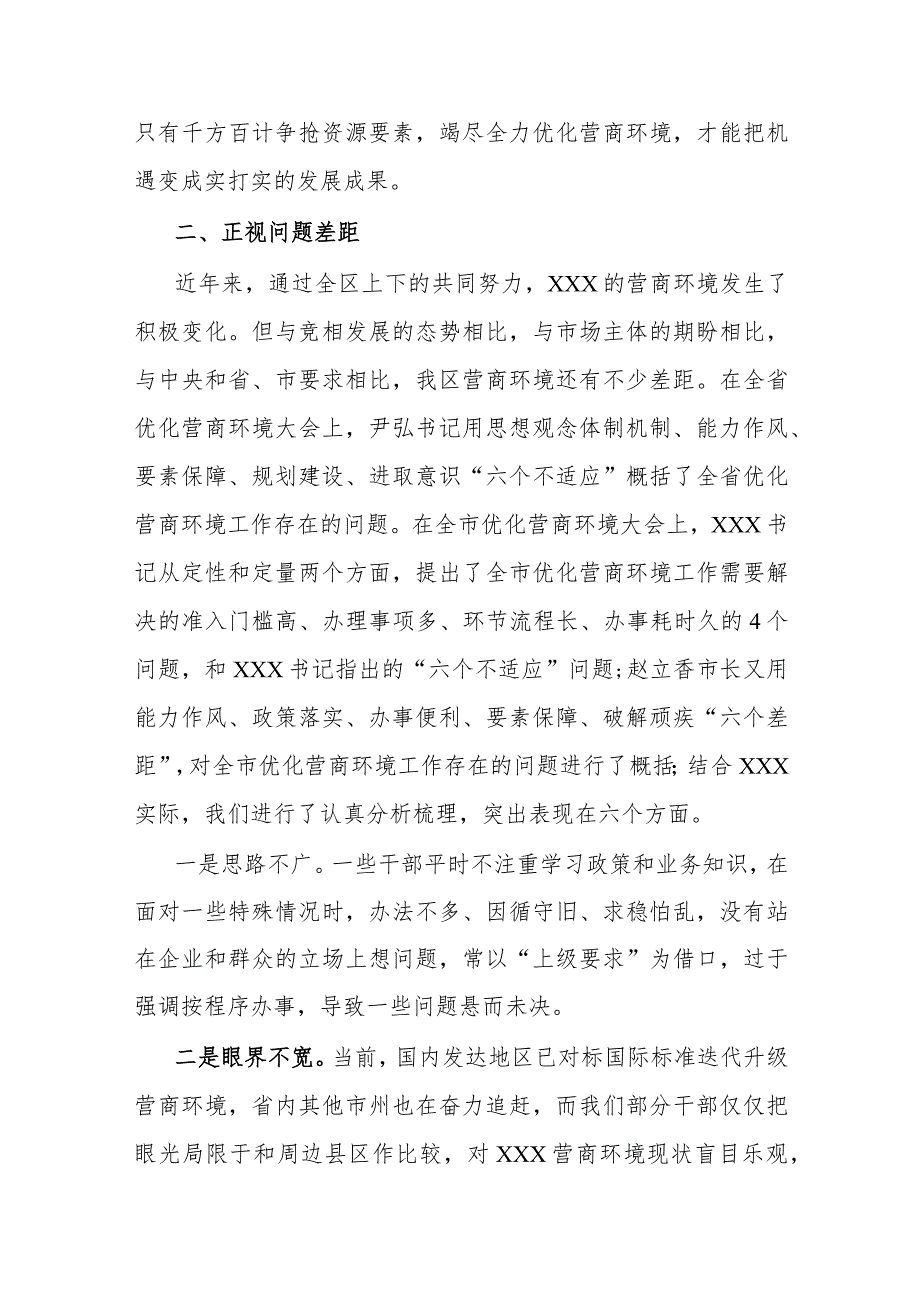 只有千方百计争抢资源要素，竭尽全力优化营商环境，才能把机
遇变成实打实的发展成果。
二、正视问题差距
近年来，通过全区上下的共同努力，XXX的营商环境发生了
积极变化。但与竞相发展的态势相比，与市场主体的期盼相比，
与中央和省、市要求相比，我区营商环境还有不少差距。在全省
优化营商环境大会上，尹弘书记用思想观念体制机制、能力作风、
要素保障、规划建设、进取意识“六个不适应”概括了全省优化
营商环境工作存在的问题。在全市优化营商环境大会上，XXX书
记从定性和定量两个方面，提出了全市优化营商环境工作需要解
决的准入门槛高、办理事项多、环节流程长、办事耗时久的4个
问题，和XXX书记指出的“六个不适应”问题;赵立香市长又用
能力作风、政策落实、办事便利、要素保障、破解顽疾“六个差
距”，对全市优化营商环境工作存在的问题进行了概括；结合XXX
实际，我们进行了认真分析梳理，突出表现在六个方面。
一是思路不广。一些干部平时不注重学习政策和业务知识，在
面对一些特殊情况时，办法不多、因循守旧、求稳怕乱，没有站
在企业和群众的立场上想问题，常以“上级要求”为借口，过于
强调按程序办事，导致一些问题悬而未决。
二是眼界不宽。当前，国内发达地区已对标国际标准迭代升级
营商环境，省内其他市州也在奋力追赶，而我们部分干部仅仅把
眼光局限于和周边县区作比较，对XXX营商环境现状盲目乐观，